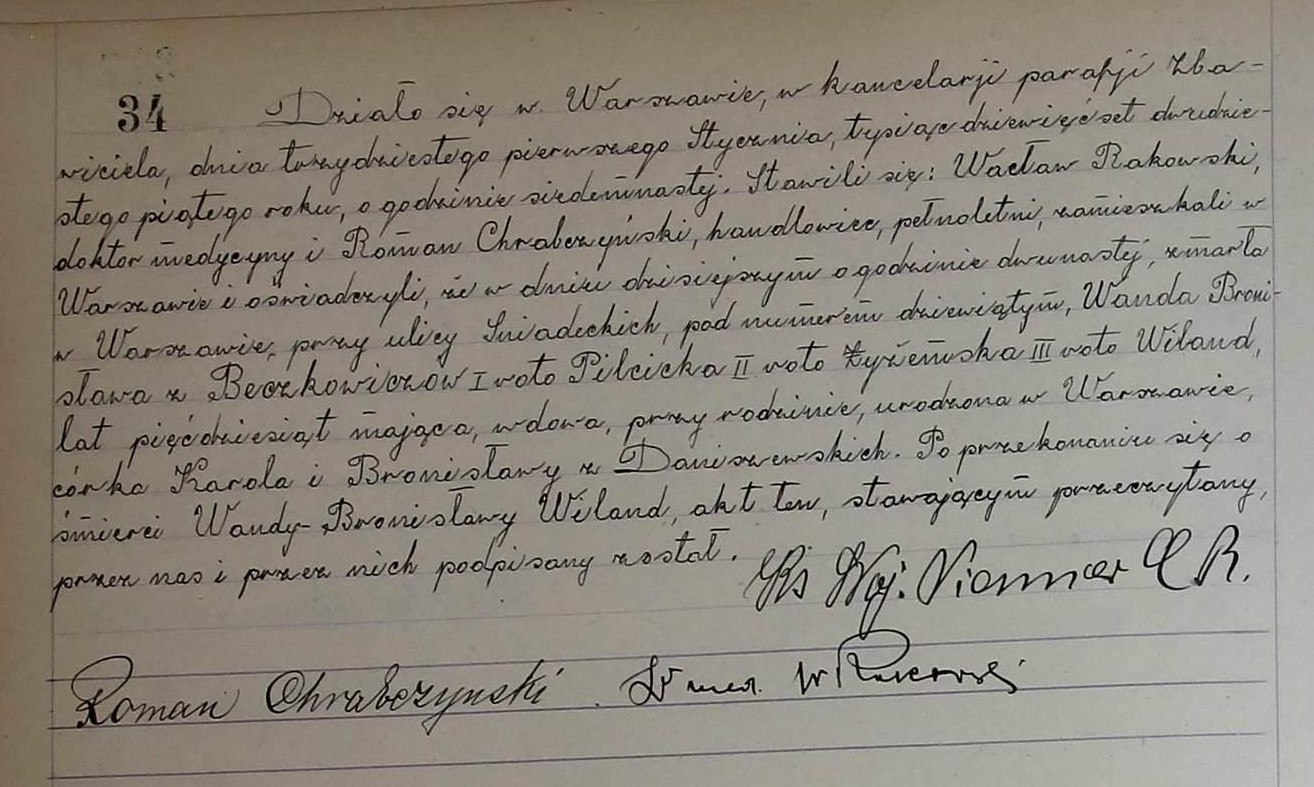 34 Działo się w Warszawie, w kancelarji parafji Zba-
wiciela, dnia trzydziestego pierwszego Stycznia, tysiąc dziewięćset dwudzie-
stego piątego roku, o godzinie siedemnastej. Stawili się: Wacław Rakowski,
doktor medycyny i Roman Chrabczyński, handlowiec, pełnoletni, zamieszkali w
Warszawie i oświadczyli, że w dniu dzisiejszym o godzinie dwunastej, zmarła
w Warszawie, przy ulicy Śniadeckich, pod numerem dziewiątym, Wanda Broni-
sława z Beczkowiczów I voto Pilcicka II voto Żyżemska III voto Wiland,
lat pięćdziesiąt mająca, wdowa, przy rodzinie, urodzona w Warszawie,
córka Karola i Bronisławy z Daniszewskich. Po przekonaniu się o
śmierci Wandy-Bronisławy Wiland, akt ten, stawającym przeczytany,
przez nas i przez nich podpisany został.
Ks Woj. R.
Roman Chrabczynski Dr med. W Rakowski